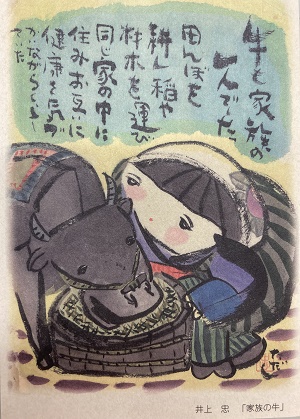 牛も家族の
一人でした
田んぼを
耕し稲や
材木を運び
同じ家の中に
住みお互いに
健康を気づ
かいながらくらし
ていた
井上 忠 「家族の牛」